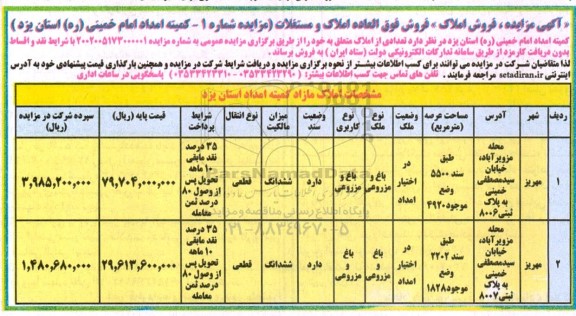 « آگهی مزایده ، فروش املاک » فروش فوق العاده املاک و مستغلات (مزایده شماره 1 - کمیته امداد امام خمینی (ره) استان یزد )
کمیته امداد امام خمینی (ره) استان یزد در نظر دارد تعدادی از املاک متعلق به خود را از طریق برگزاری مزایده عمومی به شماره مزایده ۲۰۰۲۰۰۵۱۷۳۰۰۰۰۰۱ با شرایط نقد و اقساط
بدون دریافت کارمزد از طریق سامانه تدارکات الکترونیکی دولت (ستاد ایران ) به فروش برساند .
لذا متقاضیان شرکت در مزایده می توانند برای کسب اطلاعات بیشتر از نحوه برگزاری مزایده و دریافت شرایط شرکت در مزایده و همچنین بارگذاری قیمت پیشنهادی خود به آدرس
اینترنتی setadiran.ir مراجعه فرمایند . تلفن های تماس جهت کسب اطلاعات بیشتر: ( ۰۳۵۳۳۴۲۳۲۹۰ - ۰۳۵۳۳۴۲۳۳۱۰ ) پاسخگویی در ساعات اداری
مشخصات املاک مازاد کمیته امداد استان یزد
ردیف شهر آدرس مساحت عرصه (مترمربع) وضعیت ملک نوع ملک نوع کاربری وضعیت سند میزان مالکیت نوع انتقال شرایط پرداخت قیمت پایه (ریال) سپرده شرکت در مزایده (ریال)
۱ مهریز محله مزویرآباد، خیابان سیدمصطفی خمینی به پلاک ثبتی ۸۰۰۶ طبق سند ۵۵۰۰ وضع موجود ۴۹۲۰ در اختیار امداد باغ و مزروعی باغ و مزروعی دارد ششدانگ قطعی ۳۵ درصد نقد مابقی ۱۰ ماهه تحویل پس از وصول ۸۰ درصد ثمن معامله ۷۹,۷۰۴,۰۰۰,۰۰۰ ۳,۹۸۵,۲۰۰,۰۰۰
۲ مهریز محله مزویرآباد، خیابان سیدمصطفی خمینی به پلاک ثبتی ۸۰۰۷ طبق سند ۲۲۰۲ وضع موجود ۱۸۲۸ در اختیار امداد باغ و مزروعی باغ و مزروعی دارد ششدانگ قطعی ۳۵ درصد نقد مابقی ۱۰ ماهه تحویل پس از وصول ۸۰ درصد ثمن معامله ۲۹,۶۱۳,۶۰۰,۰۰۰ ۱,۴۸۰,۶۸۰,۰۰۰
پایگاه اطلاع رسانی مناقصه و مزایده
۰۲۱-۸۸۳۴۹۶۷۰-۵